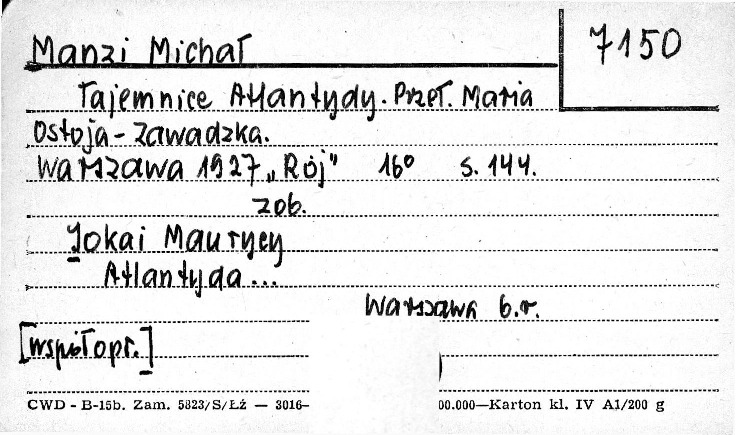 Manzi Michał
7150
Tajemnice Atlantydy. Przeł. Maria
Ostoja-Zawadzka.
Warszawa 1927 „Rój" 16° s. 144.
zob.
Jokai Maurycy
Atlantyda...
Warszawa b.r.
[współopr.]
CWD - B-15b. Zam. 5823/S/ŁŻ — 3016– 00.000—Karton kl. IV A1/200 g